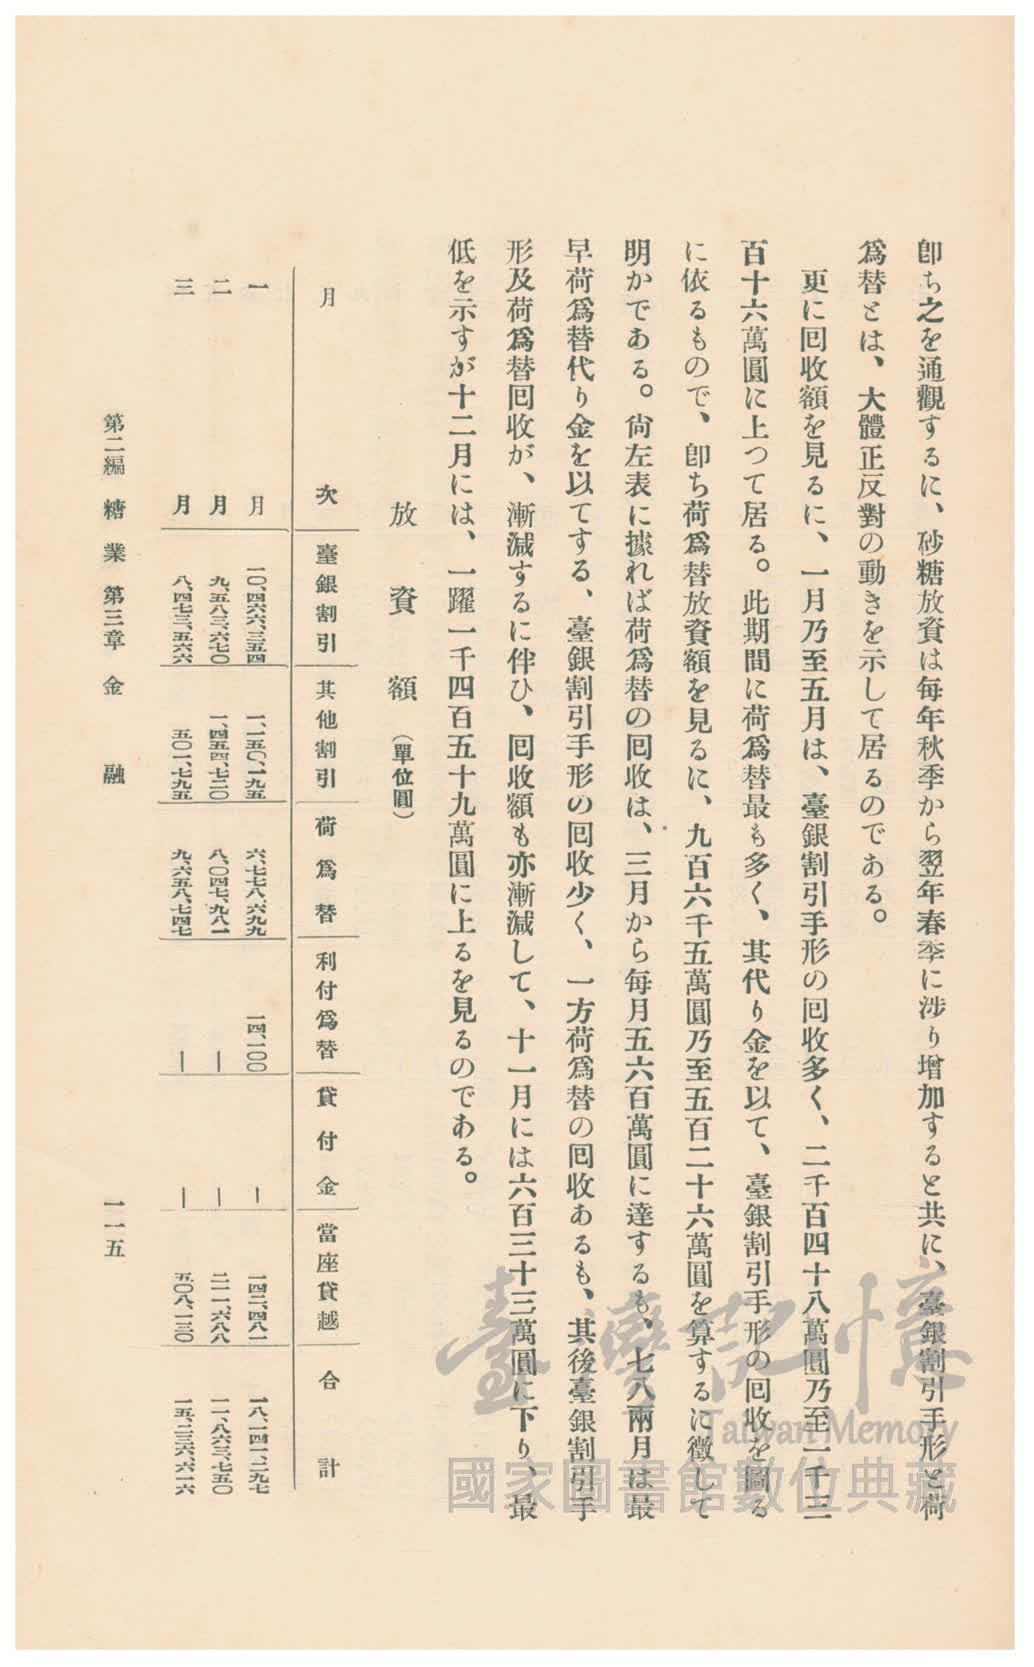 卽ち之を通觀するに、砂糖放資は每年秋季から翌年春季に涉り增加すると共に、臺銀割引手形と荷
爲替とは、大體正反對の動きを示して居るのである。
更に囘收額を見るに、一月乃至五月は、臺銀割引手形の囘收多く、二千百四十八萬圓乃至一千三
百十六萬圓に上つて居る。此期間に荷爲替最も多く、其代り金を以て、臺銀割引手形の囘收を圖る
に依るもので、卽ち荷爲替放資額を見るに、九百六千五萬圓乃至五百二十六萬圓を算するに徵して
明かである。尙左表に據れば荷爲替の囘收は、三月から每月五六百萬圓に達するも、七八兩月は最
早荷爲替代り金を以てする、臺銀割引手形の囘收少く、一方荷爲替の囘收あるも、其後臺銀割引手
形及荷爲替囘收が、漸減するに伴ひ、囘收額も亦漸減して、十一月には六百三十三萬圓に下り、最
低を示すが十二月には、一躍一千四百五十九萬圓に上るを見るのである。
放資額（單位圓）
月次 臺銀割引 其他割引 荷爲替 利付爲替 貸付金 當座貸越 合計
一月 一〇、四六六、三五四 一、一五〇、一九五 六、七七八、六九九 一四、一〇〇 ー 一四二、四八一 一八、一四一、二九七
二月 九、五八三、六七〇 一、四五四、七二〇 八、〇四七、九八一 ー ー 二一一、六八八 一一、八六三、七五〇
三月 八、四七三、五六六 五〇一、七九五 九、六五八、七四七 ー ー 五〇八、一三〇 一五、二三六、六一六
第二編 糖業 第三章 金融
一一五
臺灣記憶
Taiwan Memory
國家圖書館數位典藏